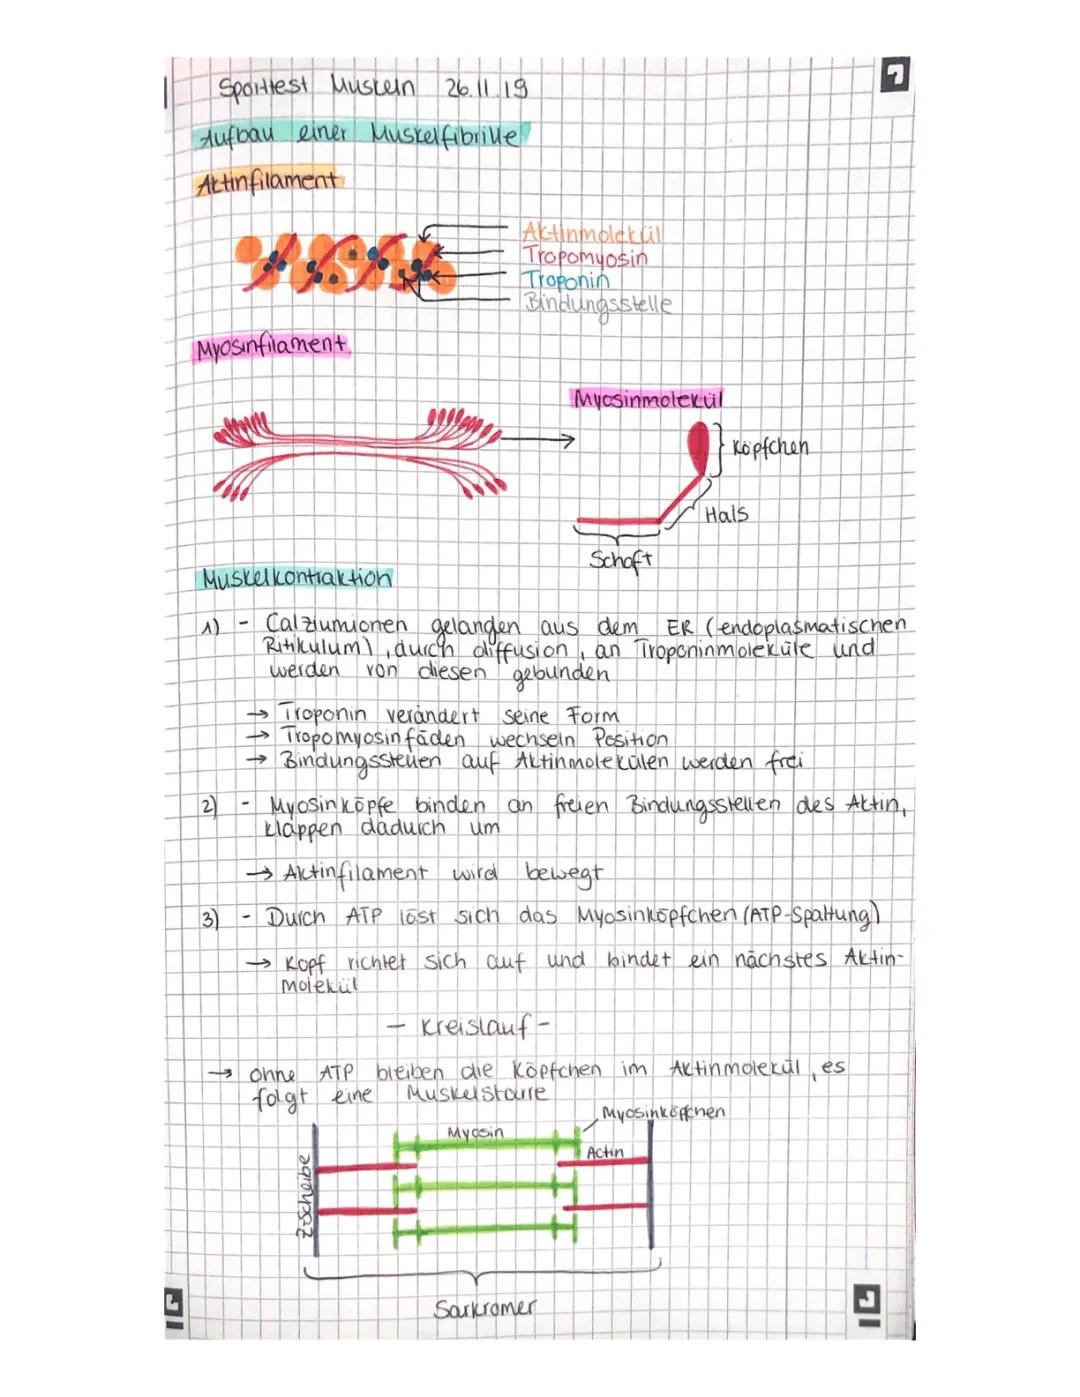 Sporttest Muskeln 26.11.19
Aufbau einer Muskelfibrille
Aktinfilament
Aktinmolekül
Tropomyosin
Troponin
Bindungsstelle
Myosinfilament
Myosinmolekül
Köpfchen
Hals
Schaft
Muskelkontraktion
1) - Calziumionen gelangen aus dem ER (endoplasmatischen
Ritikulum), durch diffusion, an Troponinmoleküle und
werden von diesen gebunden
→ Troponin verändert seine Form
→ Tropomyosinfäden wechseln Position
→ Bindungsstellen auf Aktinmolekülen werden frei
2) - Myosinköpfe binden an freien Bindungsstellen des Aktin,
klappen dadurch um
→ Aktinfilament wird bewegt
3) - Durch ATP löst sich das Myosinköpfchen (ATP-Spaltung)
→ Kopf richtet sich auf und bindet ein nächstes Aktin-
Molekül
- Kreislauf -
→ ohne ATP bleiben die Köpfchen im Aktinmolekül, es
folgt eine Muskelstarre
Myosinköpfchen
Myosin
Actin
Z-Scheibe
Sarkromer